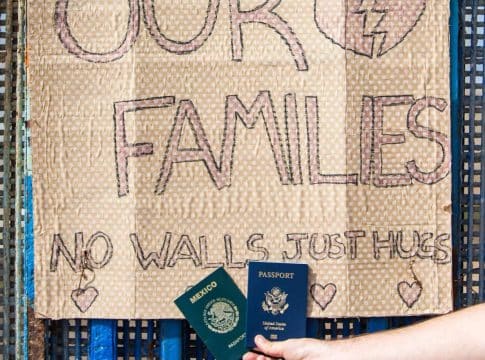 OUR
FAMILIES
NO WALLS JUST HUGS
MEXICO
PASAPORTE
PASSPORT
United States